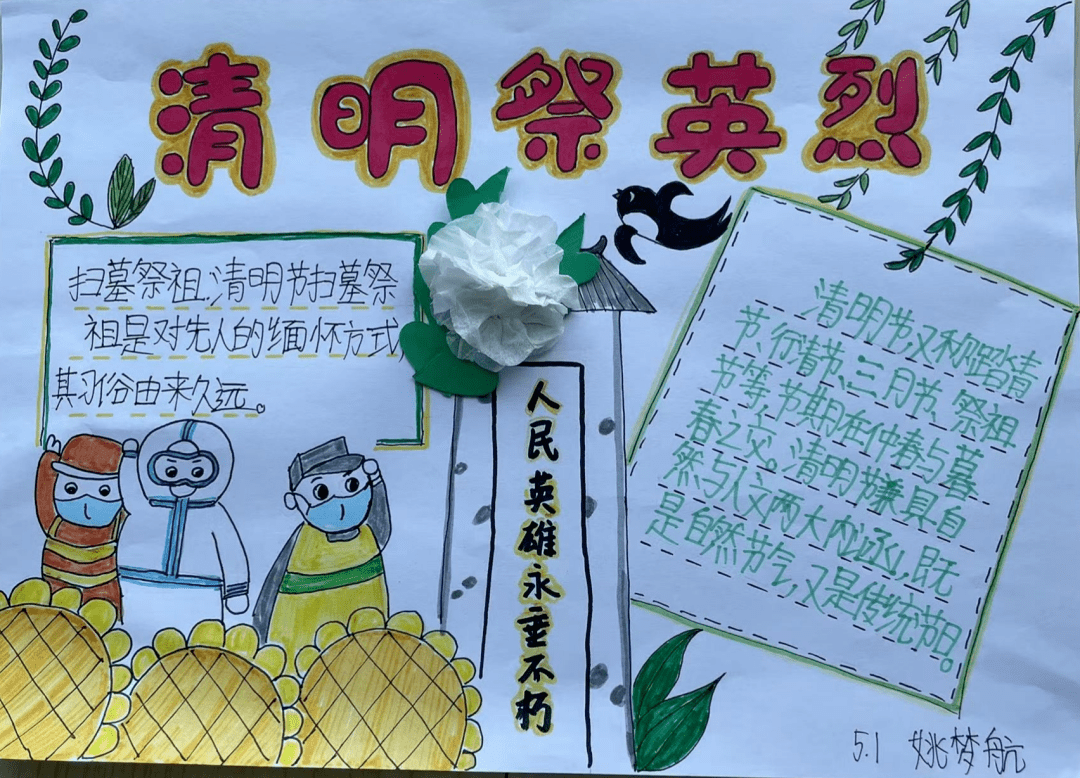 清明祭英烈
扫墓祭祖.清明节扫墓祭
祖是对先人的缅怀方式,
其习俗由来久远。
人民英雄永垂不朽
清明节又称踏青
节、行清节、三月节、祭祖
节等,节期在仲春与暮
春之交。清明节兼具自
然与人文两大内涵,既
是自然节气,又是传统节日。
5.1 姚梦航